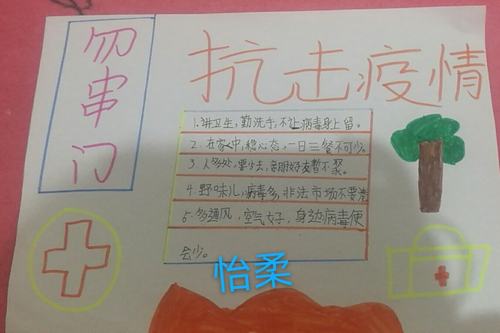 勿串门
抗击疫情
1.讲卫生,勤洗手,不让病毒身上留。
2.在家中,稳心态,一日三餐不可少。
3.人多处,要少去,亲朋好友暂不聚。
4.野味儿,病毒多,非法市场不要
5.多通风,空气好,身边病毒便
会少。
怡柔